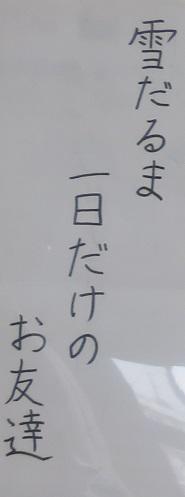 雪だるま
一日だけの
お友達